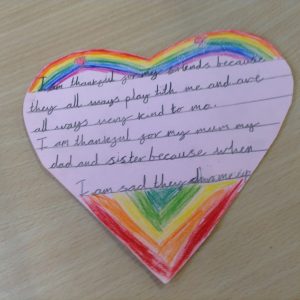 I am thankful for my friends because
they all ways play with me and are
all ways very kind to me.
I am thankful for my mum my
dad and sister because when
I am sad they me up